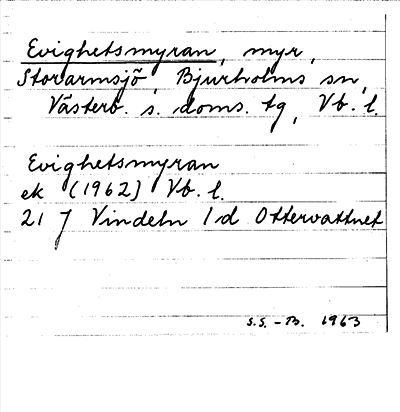 Evighetsmyran, myr,
Storarmsjö, Bjurholms sn,
Västerb. s. doms. tg, Vb. l.
Evighetsmyran
ek (1962) Vb. l.
21 J Vindeln 1d Ottervattnet
S.S. - B. 1963